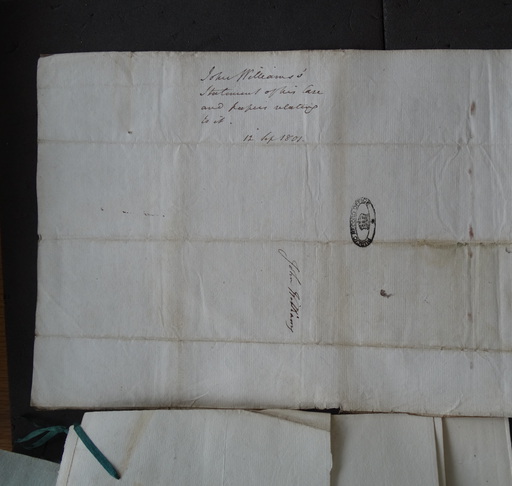 John Williams's
Statement of his Case
and papers relating
to it.
12 Sep 1801.
John Williams